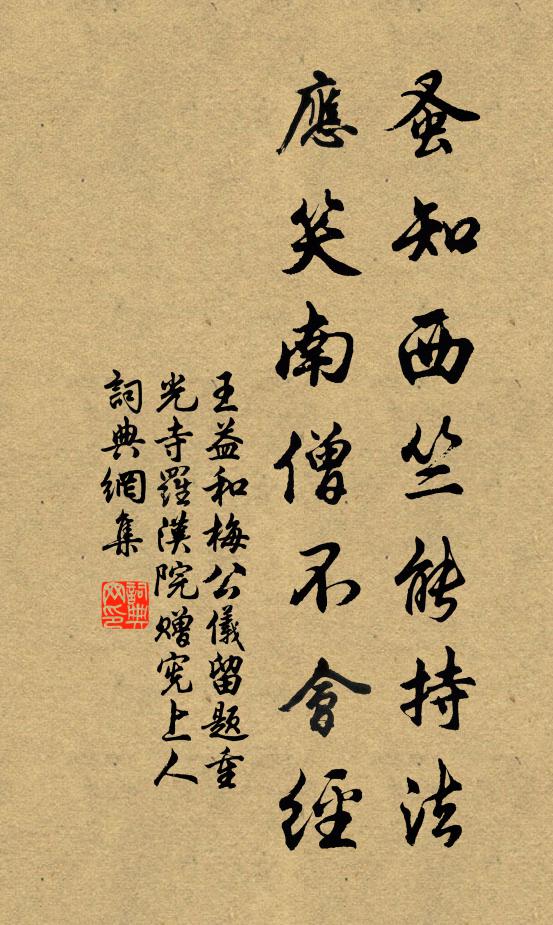 蚤知西竺能持法
應笑南僧不會經
王益和梅公儀留題重
光寺羅漢院贈宪上人
詞典網集
詞典
网印